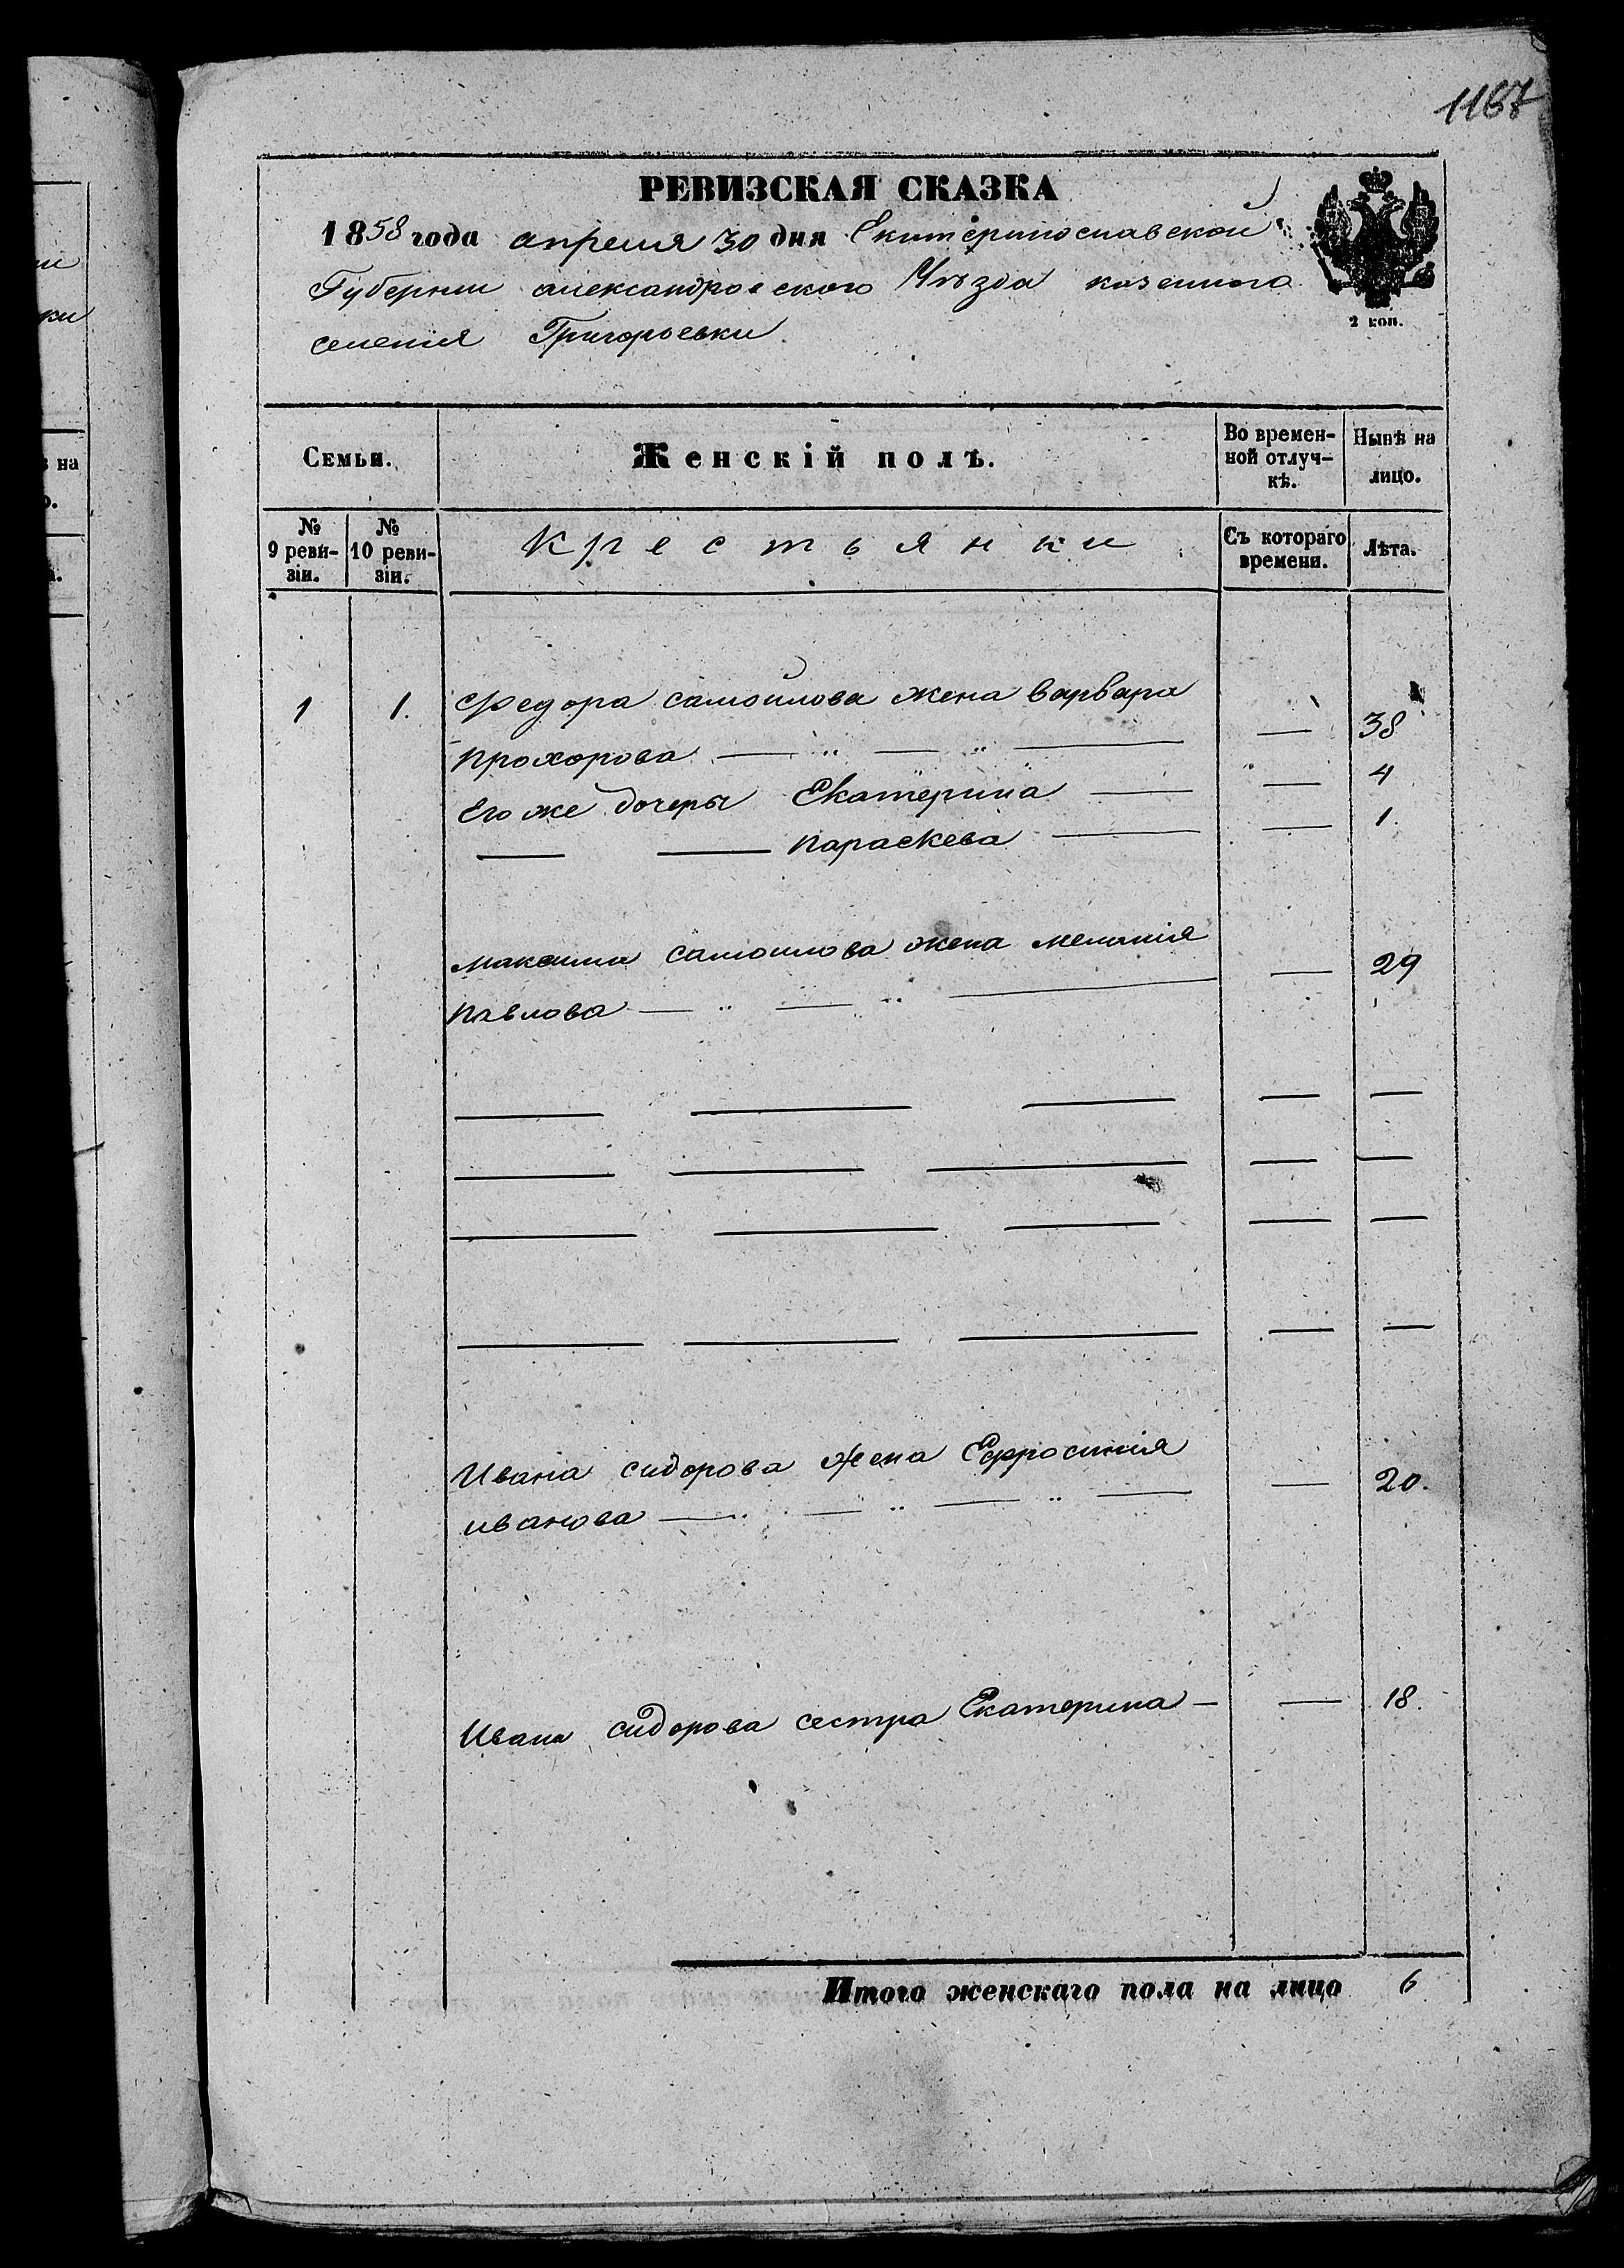 1167
РЕВИЗСКАЯ СКАЗКА
1858 года апреля 30 дня Екатеринославской
Губернии александровского Уѣзда казенного
селения Григоровки
2 коп.
Семьи.
Женскій полъ.
Во времен-
ной отлуч-
кѣ.
Нынѣ на
лицо.
№
9 реви-
зіи.
№
10 реви-
зіи.
Крестьянки
Съ котораго
времени.
Лѣта.
1 1. Федора самойлова жена варвара
прохорова — " — " — — 38
Его же дочеры Екатерина — — 4
— — параскева — — 1.
максима самойлова жена мелания
павлова — " — " — — 29
— — — — —
— — — — —
— — — — —
— — — — —
Ивана сидорова жена Ефросиния
иванова — " — " — " — — 20.
Ивана сидорова сестра Екатерина — — 18.
Итого женскаго пола на лицо 6
ки
на